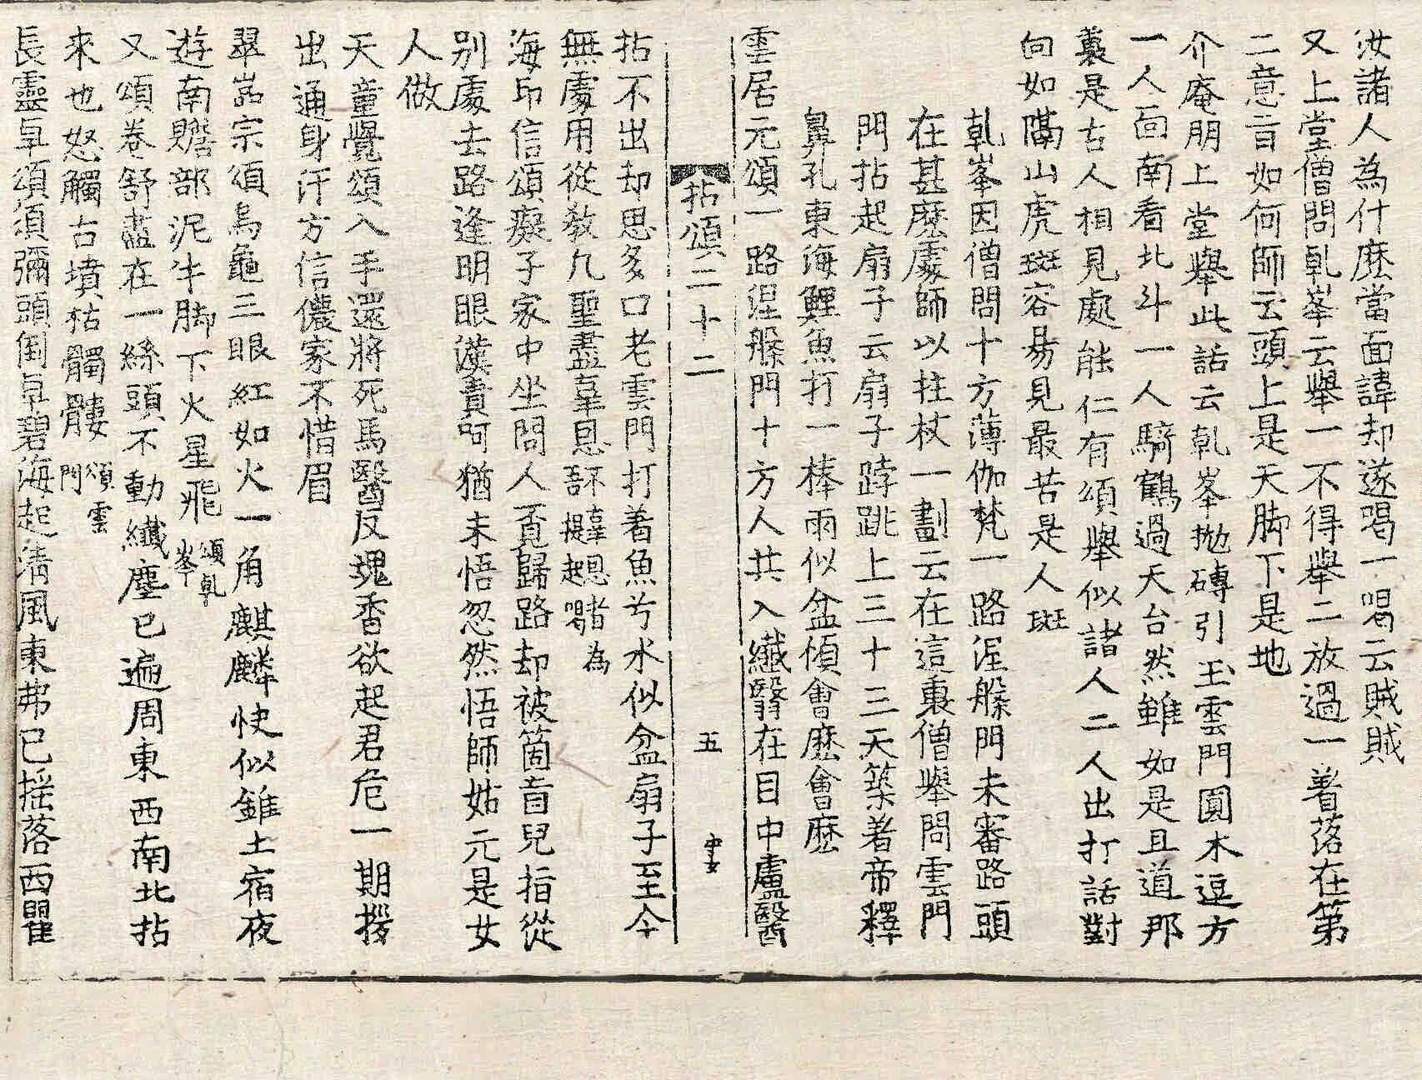 汝諸人為什麽當面諱却遂喝一喝云賊賊
又上堂僧問乹峯云舉一不得舉二放過一著落在第
二意旨如何師云頭上是天脚下是地
介庵朋上堂舉此話云乹峯抛磚引玉雲門圓木逗方
一人面南看北斗一人騎鶴過天台然雖如是且道那
裏是古人相見處能仁有頌舉似諸人二人出打話對
向如隔山虎斑容易見最苦是人斑
乹峯因僧問十方薄伽梵一路涅槃門未審路頭
在甚麽處師以拄杖一劃云在這裏僧舉問雲門
門拈起扇子云扇子𨁝跳上三十三天築著帝釋
鼻孔東海鯉魚打一棒雨似盆傾會麽會麽
雲居元頌一路涅槃門十方人共入纖翳在目中盧醫
拈頌二十二 五
拈不出却思多口老雲門打着魚兮水似盆扇子至今
無處用從教凡聖盡辜恩 不辜恩者為吾提起喝
海印信頌癡子家中坐問人覓歸路却被箇盲兒指從
别處去路逢明眼漢責呵猶未悟忽然悟師姑元是女
人做
天童覺頌入手還將死馬醫反魂香欲起君危一期拶
出通身汗方信儂家不惜眉
翠嵓宗頌烏龜三眼紅如火一角麒麟快似錐土宿夜
遊南贍部泥牛脚下火星飛 頌乹峯
又頌卷舒盡在一絲頭不動纖塵已遍周東西南北拈
來也怒觸古墳枯髑髏 頌雲門
長靈卓頌須彌頭倒卓碧海起清風東弗已搖落西瞿